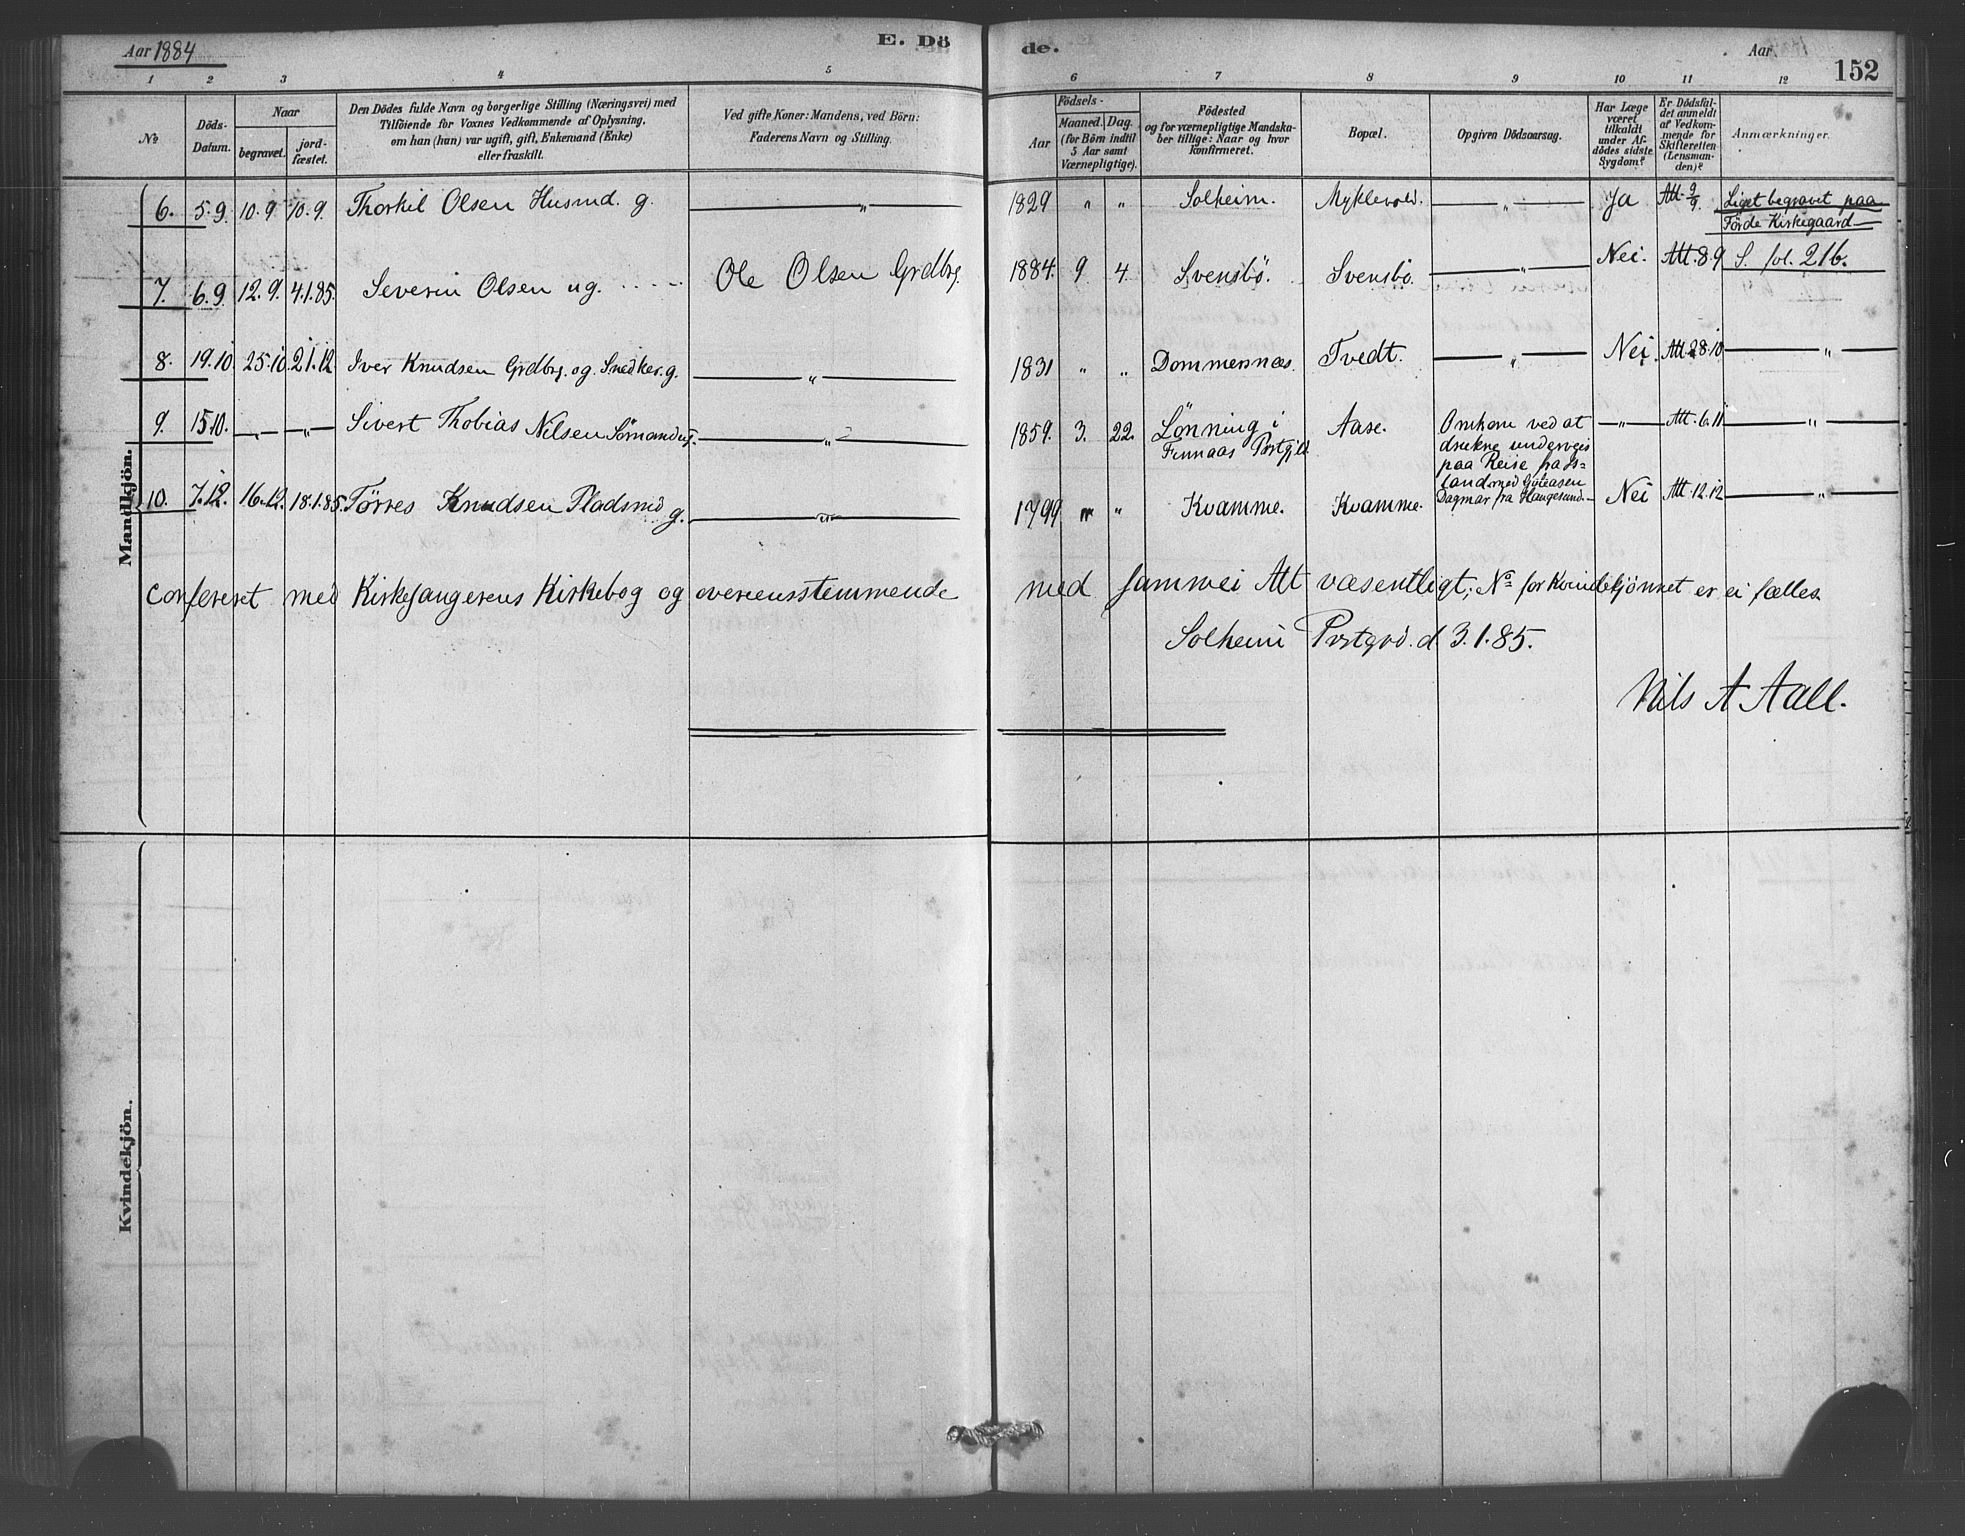 Aar 1884
E. Dö
de.
Aar
152
1 2 3 4 5 6 7 8 9 10 11 12
No
Döds-
Datum.
Naar
begravet.
jord-
fæstet.
Den Dödes fulde Navn og borgerlige Stilling (Næringsvei) med
Tilföiende for Voxnes Vedkommende af Oplysning,
om han (hun) var ugift, gift, Enkemand (Enke)
eller fraskilt.
Ved gifte Koner: Mandens, ved Börn:
Faderens Navn og Stilling.
Födsels-
Aar
Maaned. Dag.
(for Börn indtil
5 Aar samt
Værnepligtige).
Födested
og for værnepligtige Mandska-
ber tillige: Naar og hvor
konfirmeret.
Bopæl.
Opgiven Dödsaarsag.
Har Læge
været
tilkaldt
under Af-
dödes sidste
Sygdom?
Er Dödsfal-
det anmeldt
af Vedkom-
mende for
Skifteretten
(Lensman-
den)?
Anmærkninger.
Mandkjön.
6. 5.9. 10.9. 10.9. Thorkil Olsen Husmd. g. — „ — 1829 „ „ Solheim. Myklevold. — „ — Ja Att. 9/9. Liget begravet paa
Förde Kirkegaard
7. 6.9. 12.9. 4.1.85. Severin Olsen ug. Ole Olsen Grdbrg. 1884. 9. 4. Svensbö. Svensbö. — „ — Nei. Att. 8.9 S. fol. 216.
8. 19.10. 25.10. 21.12. Iver Knudsen Grdbrg. og Snedker. g. — „ — 1831 „ „ Dommersnæs. Tvedt. — „ — Nei. Att. 28.10. — „ —
9. 15.10. — „ — — „ — Sivert Thobias Nilsen Sömand ug. — „ — 1859. 3. 22. Lönning i
Finnaas Prstgjld. Aase. Omkom ved at
drukne underveis
paa Reise fra Is-
land med Galeasen
Dagmar fra Haugesund. — „ — Att. 6.11. — „ —
10. 7.12. 16.12. 18.1.85. Törres Knudsen Pladsmd g. — „ — 1799 „ „ Kvamme. Kvamme. Nei Att. 12.12 — „ —
Confereret med Kirkesangerens Kirkebog og overeensstemmende med samme i Alt væsentligt; No for Kvindekjönnet er ei fælles.
Solheim Prstgrd. d. 3.1.85.
Nils A Aall.
Kvindekjön.